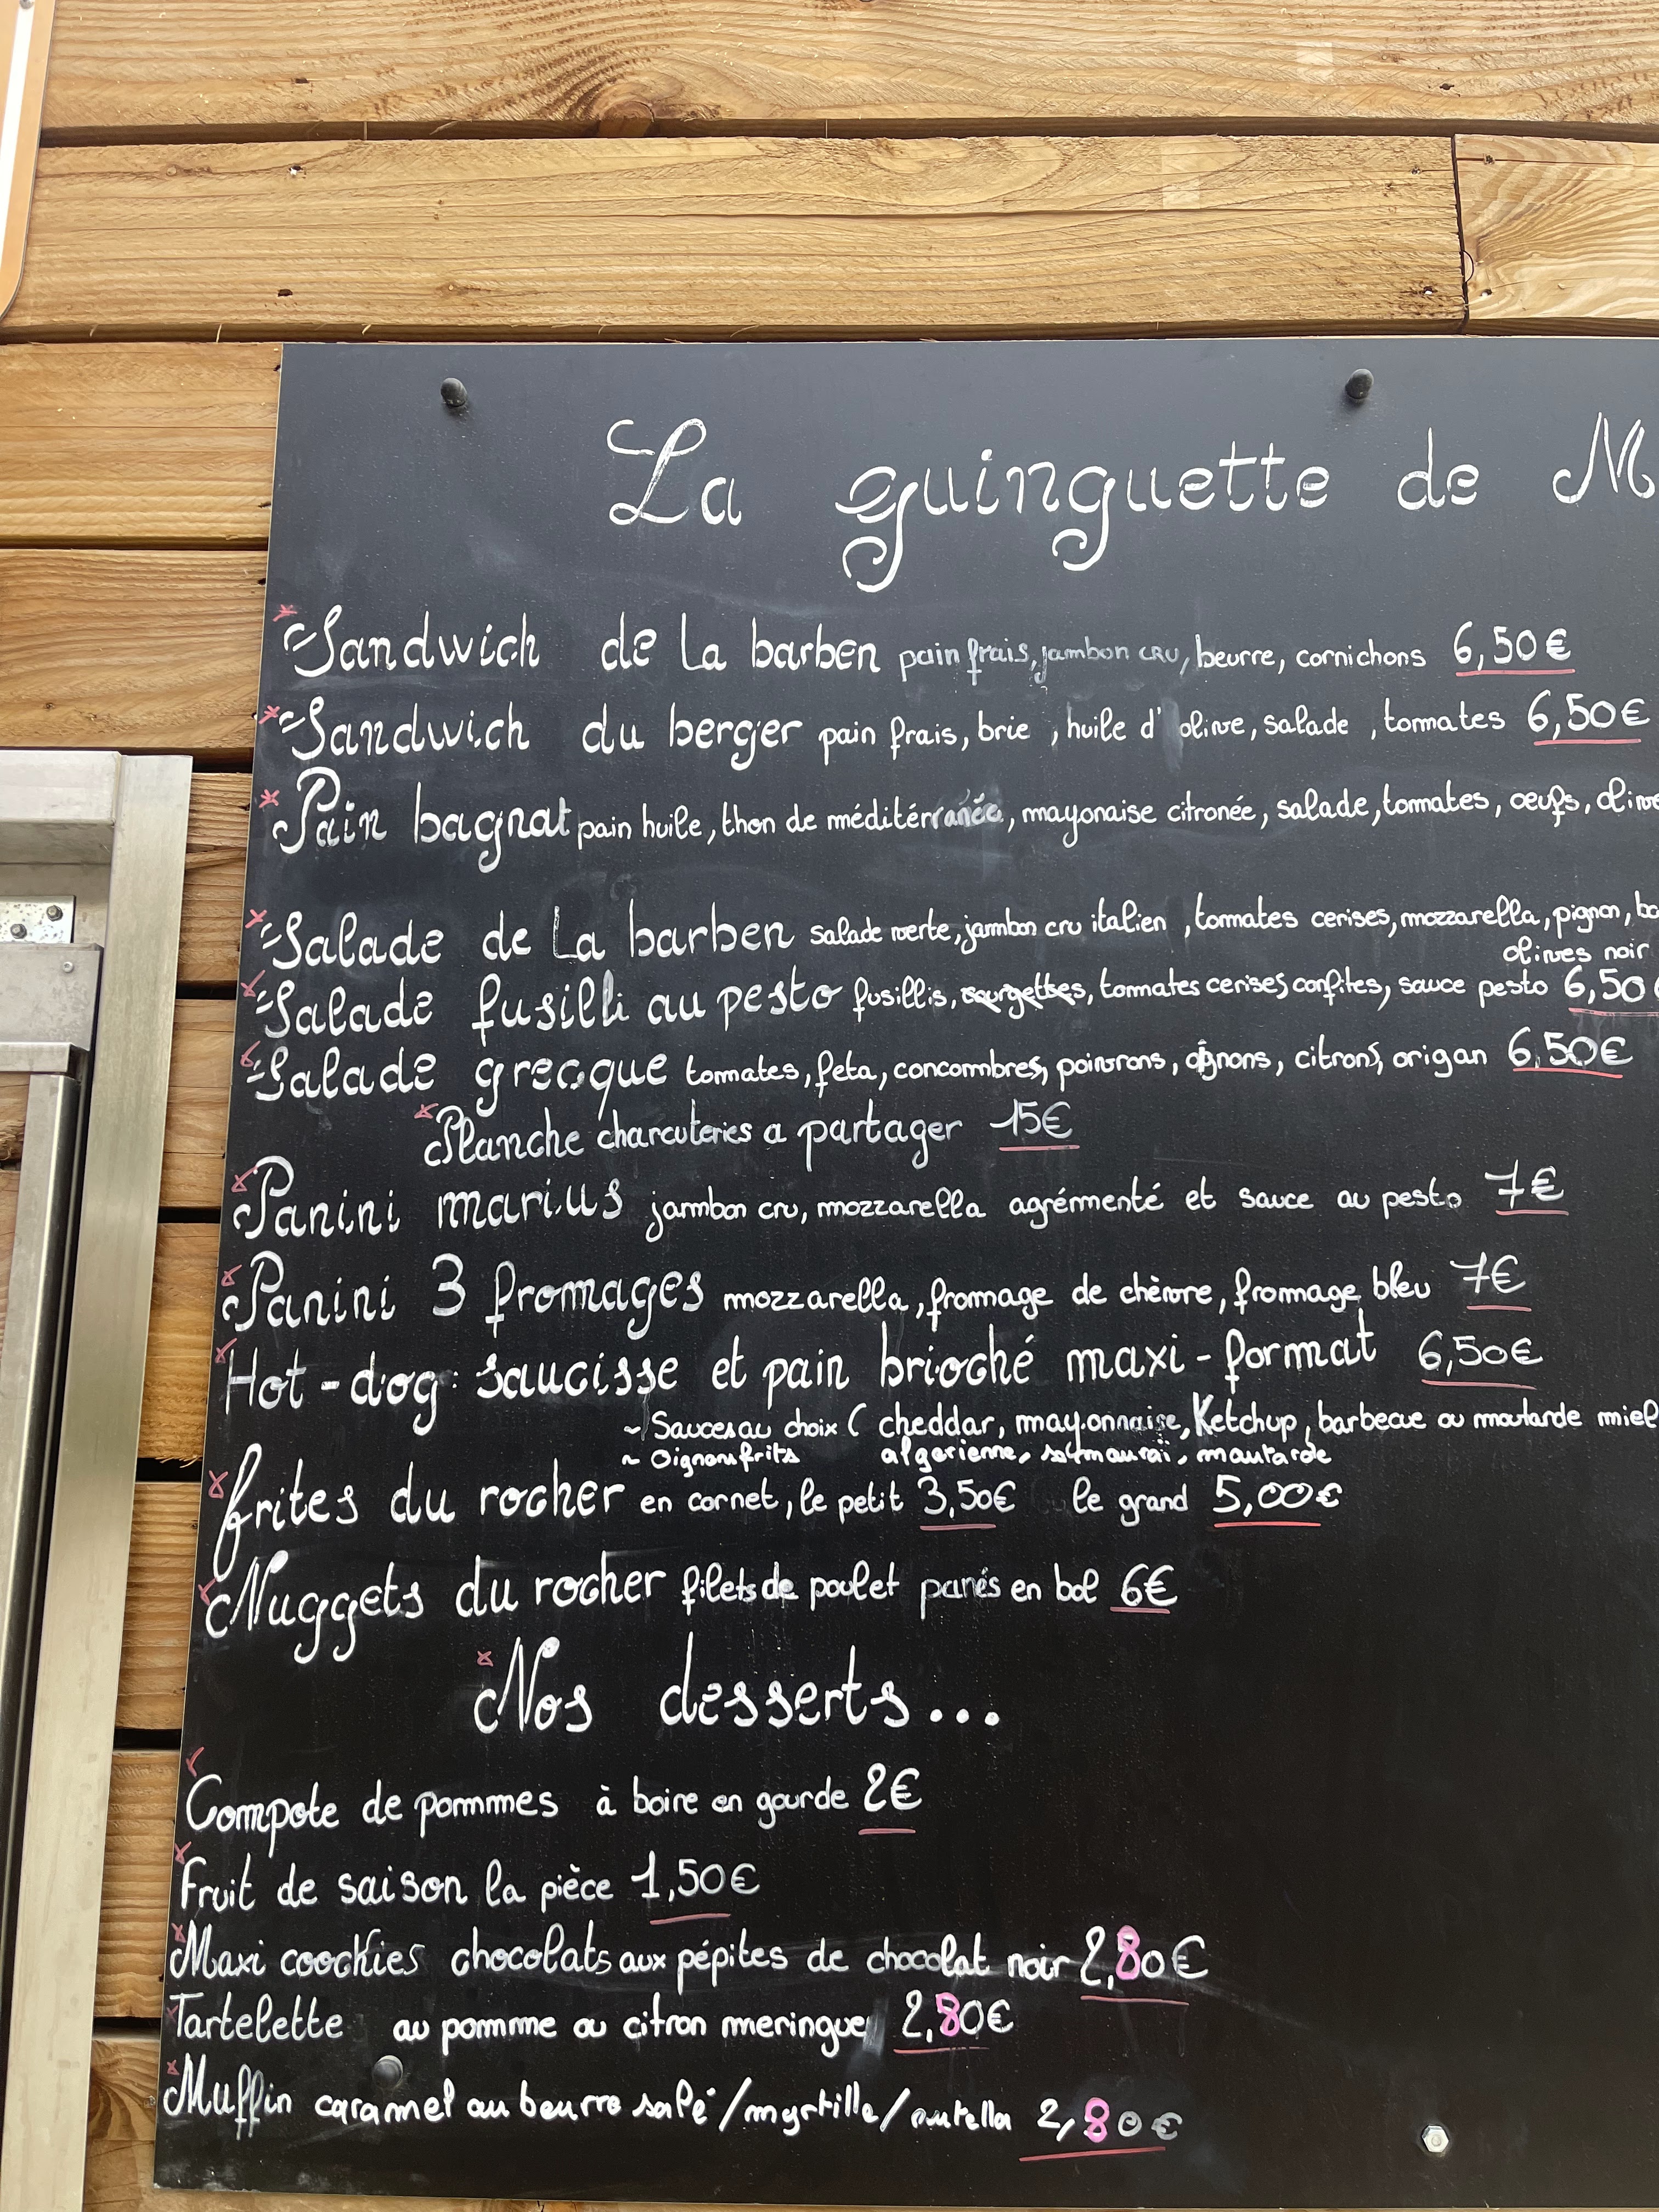 La guinguette de M
Sandwich de la barben pain frais, jambon cru, beurre, cornichons 6,50€
Sandwich du berger pain frais, brie, huile d'olive, salade, tomates 6,50€
Pain bagnat pain huile, thon de méditérranée, mayonaise citronée, salade, tomates, œufs, olive
Salade de La barben salade verte, jambon cru italien, tomates cerises, mozzarella, pignon, ba
olives noir
Salade fusilli au pesto fusillis, courgettes, tomates cerises confites, sauce pesto 6,50€
Salade grecque tomates, feta, concombres, poivrons, oignons, citrons, origan 6,50€
Planche charcuteries a partager 15€
Panini marius jambon cru, mozzarella agrémenté et sauce au pesto 7€
Panini 3 fromages mozzarella, fromage de chèvre, fromage bleu 7€
Hot-dog: saucisse et pain brioché maxi-format 6,50€
~ Sauces au choix ( cheddar, mayonnaise, Ketchup, barbecue ou moutarde miel
~ Oignons frits algerienne, moutarde
frites du rocher en cornet, le petit 3,50€ le grand 5,00€
Nuggets du rocher filets de poulet panés en bol 6€
Nos desserts...
Compote de pommes à boire en gourde 2€
Fruit de saison la pièce 1,50€
Maxi coockies chocolats aux pépites de chocolat noir 2,80€
Tartelette au pomme ou citron meringue 2,80€
Muffin caramel au beurre salé/myrtille/nutella 2,80€